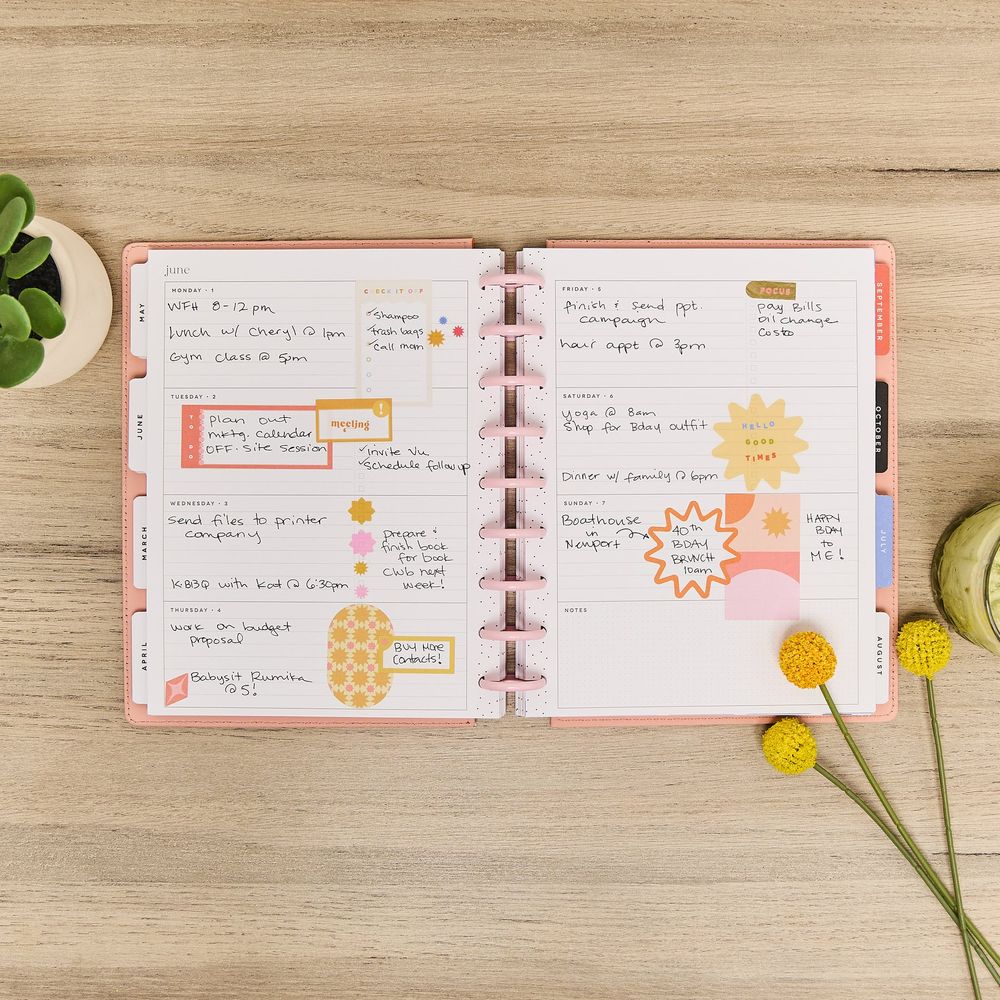 june
MONDAY · 1
WFH 8-12 pm
Lunch w/ Cheryl @ 1pm
Gym class @ 5pm
CHECK IT OFF
shampoo
trash bags
call mom
TUESDAY · 2
TO DO
Plan out
mktg. calendar
OFF. Site Session
meeting
!
✓invite Vu
✓schedule follow up
WEDNESDAY · 3
Send files to printer
company
KBBQ with Kat @ 6:30pm
prepare &
finish book
for book
club next
week!
THURSDAY · 4
work on budget
proposal
Babysit Rumika
@ 5!
BUY More
Contacts!
FRIDAY · 5
finish & send ppt.
campaign
hair appt @ 3pm
FOCUS
pay Bills
Oil Change
Costco
SATURDAY · 6
Yoga @ 8am
Shop for Bday outfit
Dinner w/ family @ 6pm
HELLO
GOOD
TIMES
SUNDAY · 7
Boathouse
in
Newport
40th
BDAY
BRUNCH
10am
HAPPY
BDAY
to
ME!
NOTES
MAY
JUNE
MARCH
APRIL
SEPTEMBER
OCTOBER
JULY
AUGUST